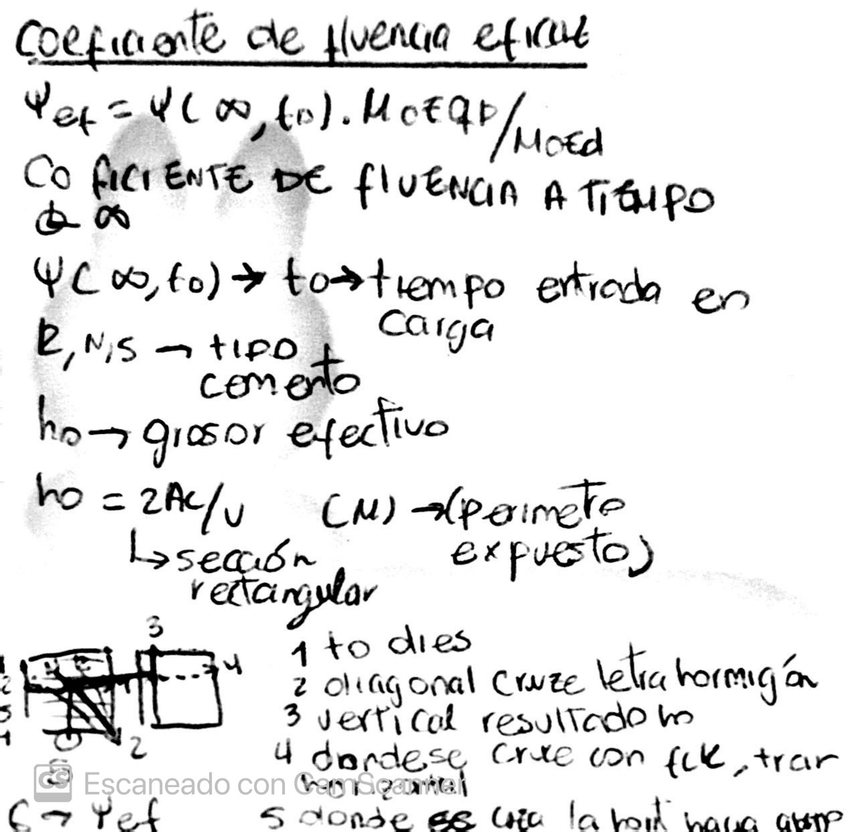 coeficiente de fluencia eficaz
Ψef = Ψ(∞, to). MOEQP/MOEd
COFICIENTE DE fLUENCIA A TiEMPO
∞
Ψ(∞, to) → to → tiempo entrada en
carga
R, N, S → tipo
cemento
ho → grosor efectivo
ho = 2Ac/u (M) → (perimetro
expuesto)
↳ sección
rectangular
3
4
1 to dies
2
2 diagonal cruze letra hormigón
3 vertical resultado ho
4 dondese cruze con fck, trar
CS Escaneado con CamScanner
horizontal
6 → Ψef
5 donde la